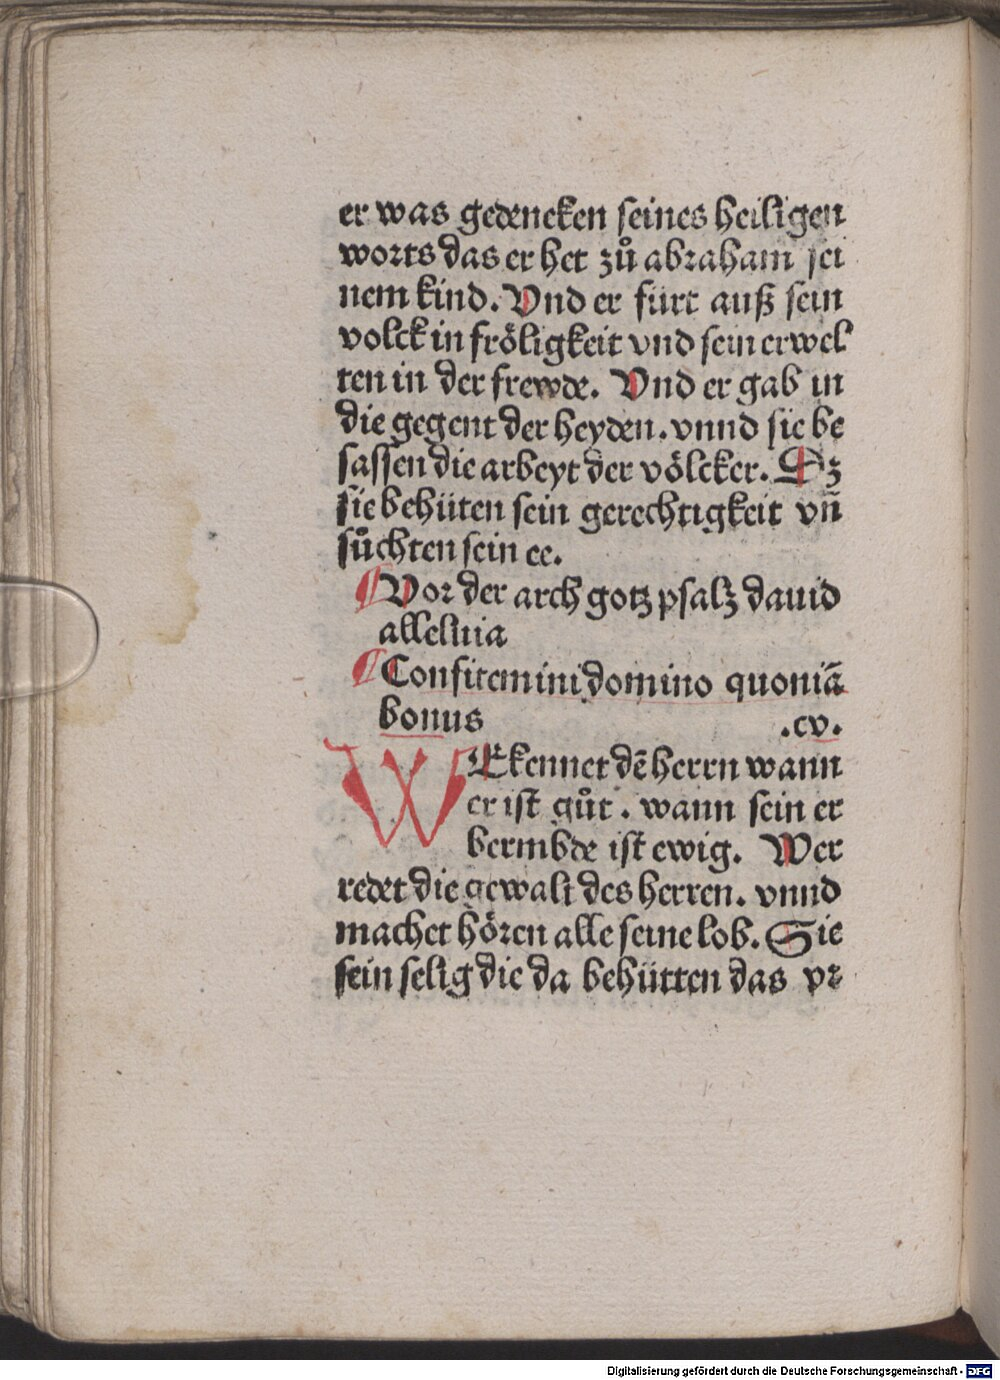 er was gedencken seines heiligen
worts das er het zů abraham sei
nem kind. Vnd er fürt auß sein
volck in fröligkeit vnd sein erwel
ten in der frewde. Vnd er gab in
die gegent der heyden. vnnd sie be
sassen die arbeyt der völcker. Dz
sie behüten sein gerechtigkeit vn̄
sůchten sein ee.
Vor der arch gotz psalʒ dauid
alleluia
Confitemini domino quoniā
bonus .cv.
WEkennet dē herrn wann
er ist gůt. wann sein er
bermbde ist ewig. Wer
redet die gewalt des herren. vnnd
machet hören alle seine lob. Sie
sein selig die da behütten das vr
Digitalisierung gefördert durch die Deutsche Forschungsgemeinschaft - DFG